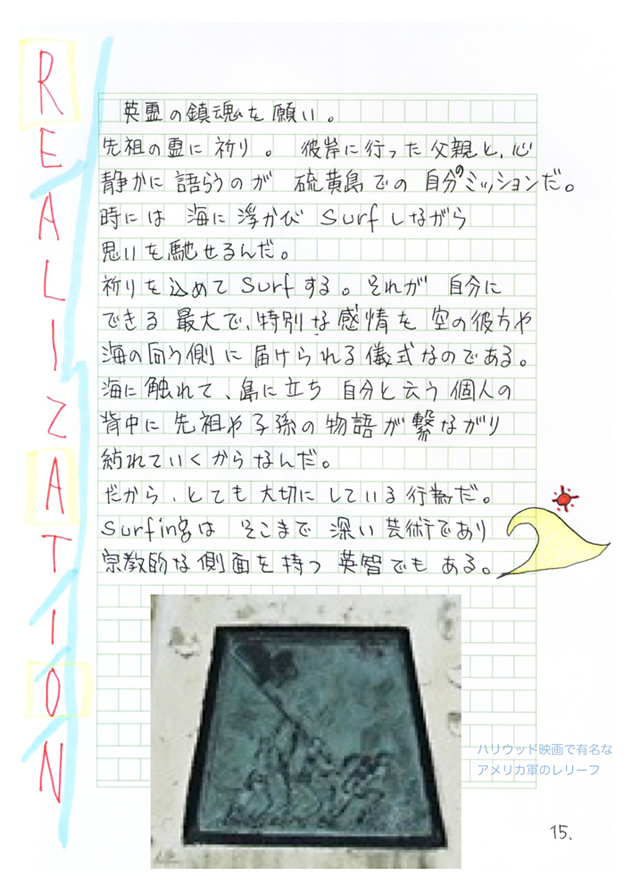 REALIZATION
英霊の鎮魂を願い。
先祖の霊に祈り。彼岸に行った父親と、心
静かに語らうのが 硫黄島での自分のミッションだ。
時には 海に浮かび Surfしながら
思いを馳せるんだ。
祈りを込めてSurfする。それが 自分に
できる 最大で、特別な感情を 空の彼方や
海の向う側に届けられる儀式なのである。
海に触れて、島に立ち 自分と云う個人の
背中に先祖や子孫の物語が繋ながり
紡れていくからなんだ。
だから、とても大切にしている行為だ。
Surfingは そこまで 深い芸術であり
宗教的な側面を持つ 英智でもある。
ハリウッド映画で有名な
アメリカ軍のレリーフ
15.